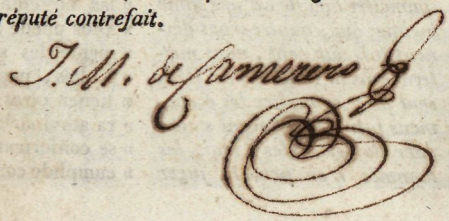 réputé contrefait.
J. M. de Camerero